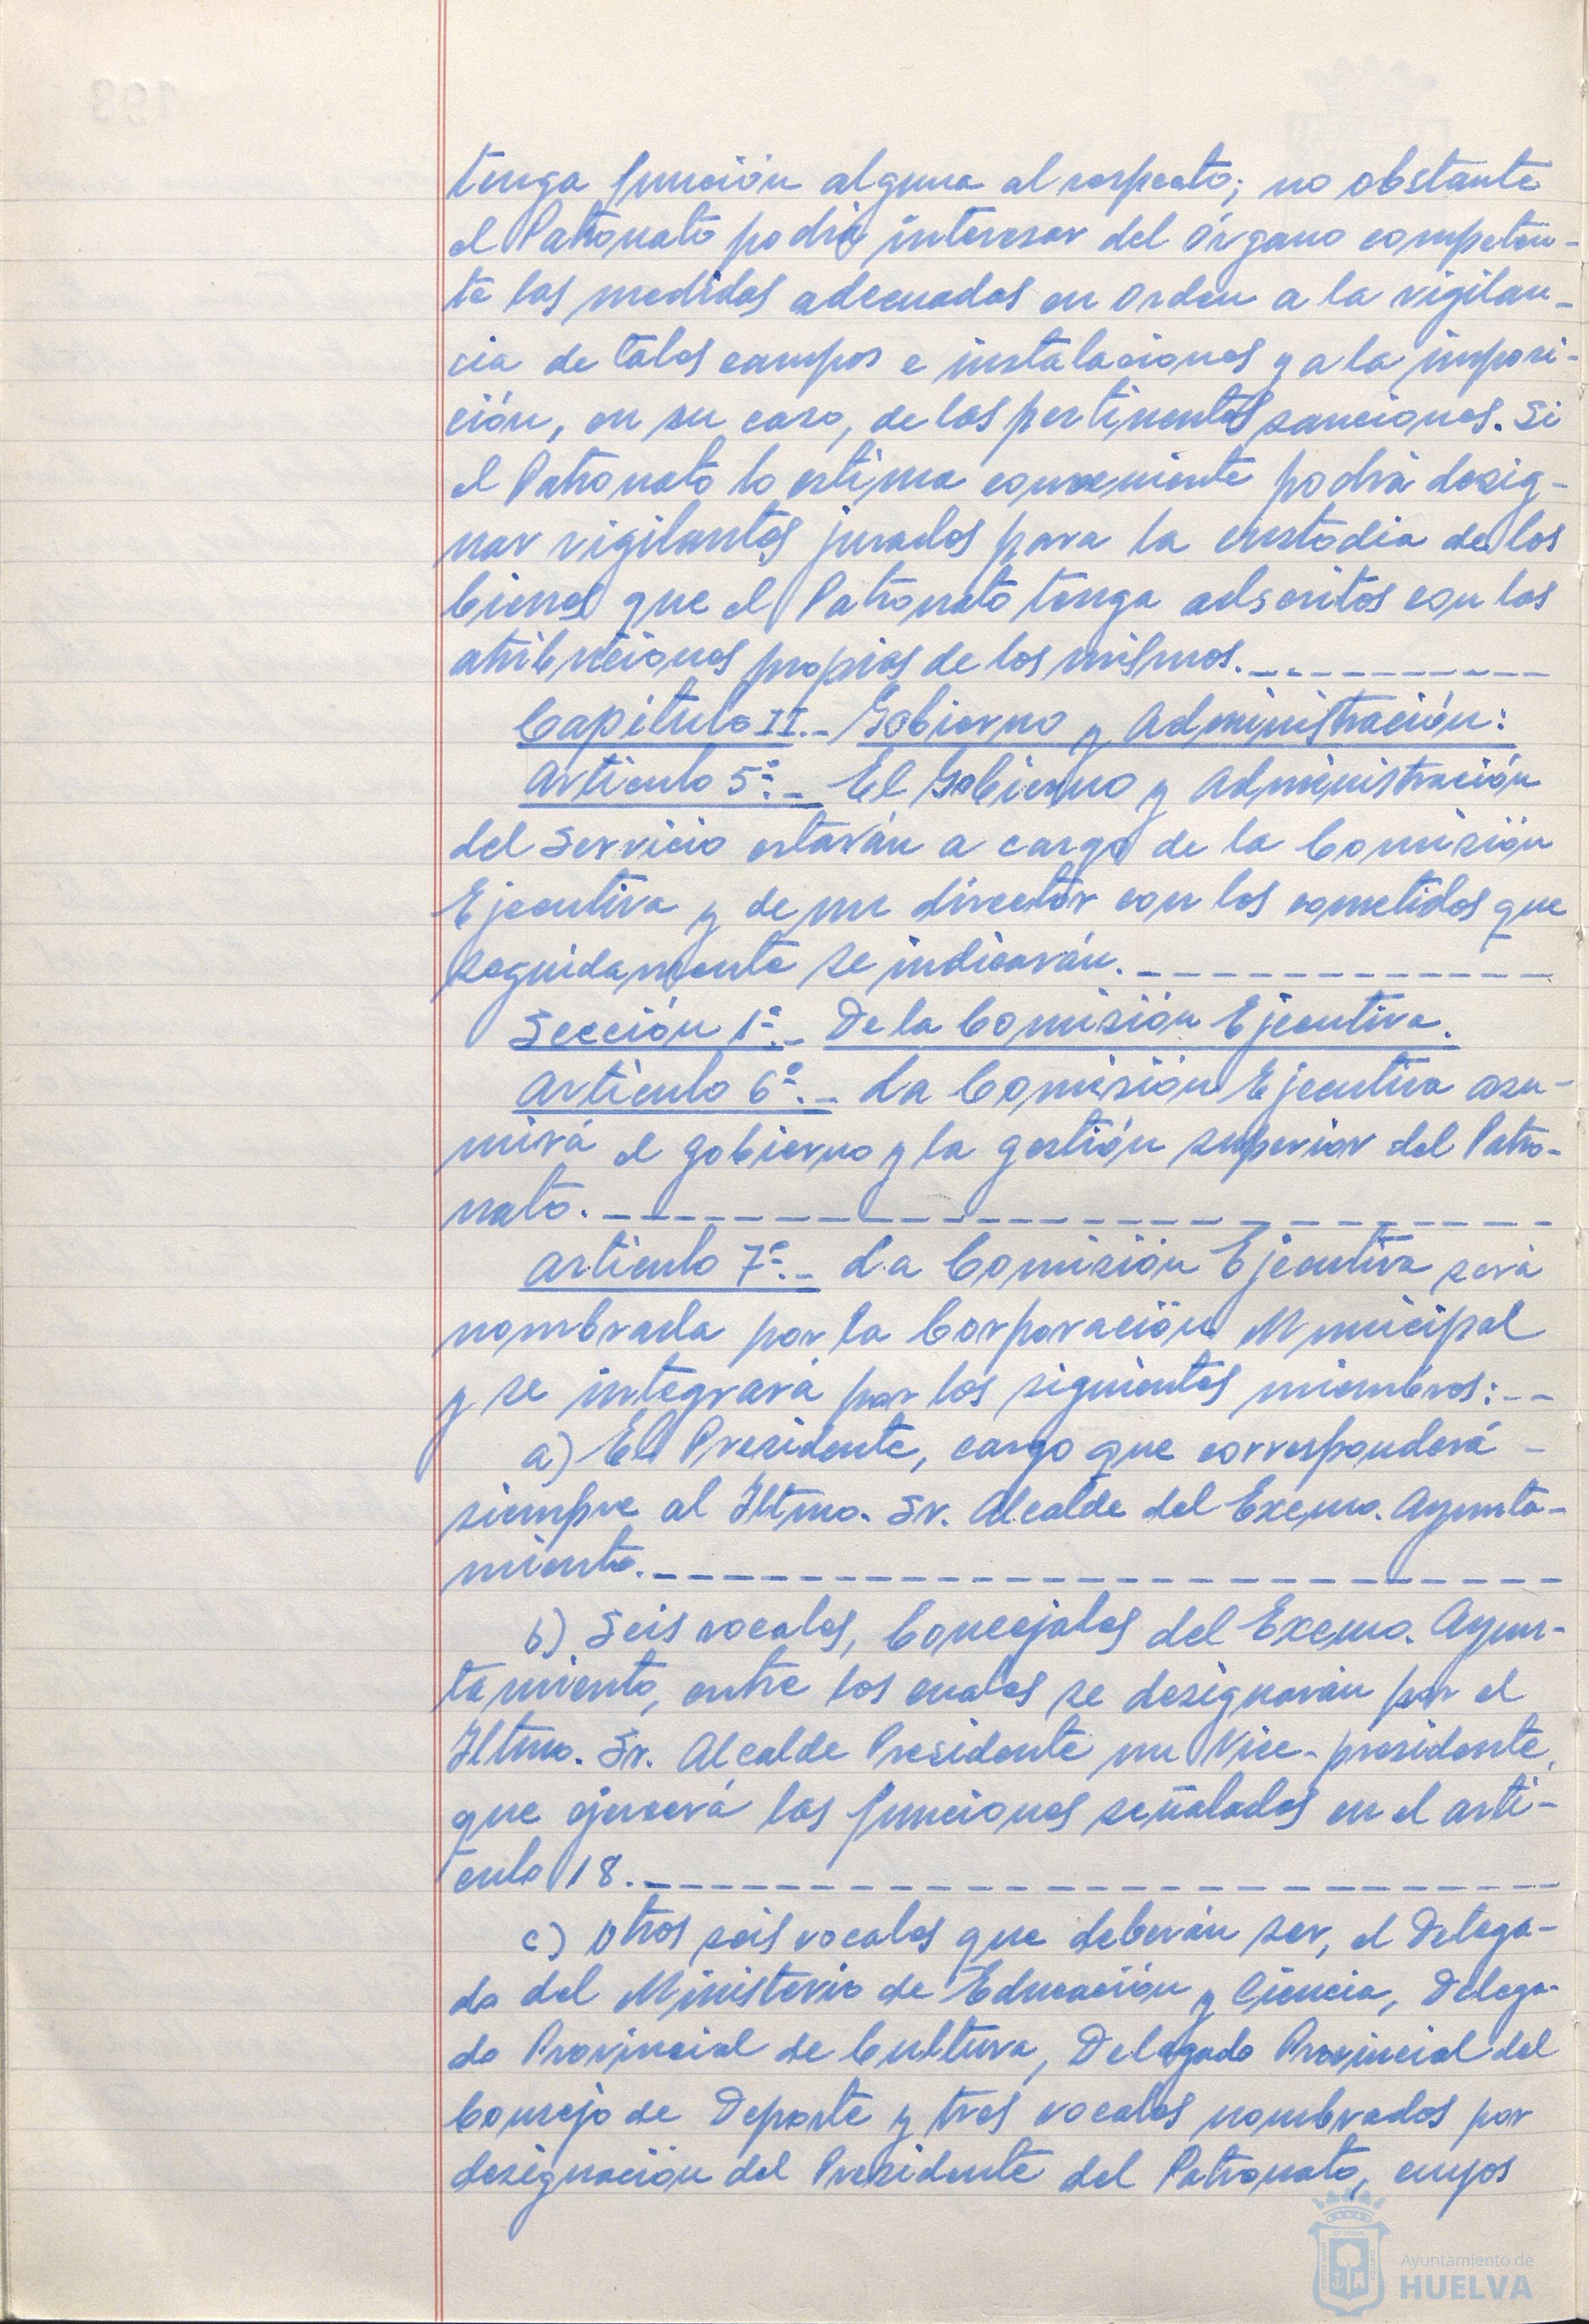 tenga función alguna al respecto; no obstante
el Patronato podrá interesar del órgano competen-
te las medidas adecuadas en orden a la vigilan-
cia de tales campos e instalaciones y a la imposi-
ción, en su caso, de las pertinentes sanciones. Si
el Patronato lo estima conveniente podrá desig-
nar vigilantes jurados para la custodia de los
bienes que el Patronato tenga adscritos con las
atribuciones propias de los mismos.
Capítulo II.- Gobierno y Administración:
Artículo 5º.- El Gobierno y Administración
del Servicio estarán a cargo de la Comisión
Ejecutiva y de un director con los cometidos que
seguidamente se indicarán.
Sección 1ª.- De la Comisión Ejecutiva.
Artículo 6º.- La Comisión Ejecutiva asu-
mirá el gobierno y la gestión superior del Patro-
nato.
Artículo 7º.- La Comisión Ejecutiva será
nombrada por la Corporación Municipal
y se integrará por los siguientes miembros:--
a) El Presidente, cargo que corresponderá -
siempre al Iltmo. Sr. Alcalde del Excmo. Ayunta-
miento.
b) Seis vocales, Concejales del Excmo. Ayun-
tamiento, entre los cuales se designarán por el
Iltmo. Sr. Alcalde Presidente un Vice-presidente,
que ejercerá las funciones señaladas en el artí-
culo 18.
c) Otros seis vocales que deberán ser, el Delega-
do del Ministerio de Educación y Ciencia, Delega-
do Provincial de Cultura, Delegado Provincial del
Consejo de Deporte y tres vocales nombrados por
designación del Presidente del Patronato, cuyos
Ayuntamiento de
HUELVA